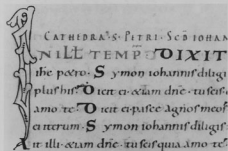 CATHEDRA S PITRI. SCD IOHAN
N ILL TEMP DIXIT
ihc petro. Symon iohannis diligi
plus his Dicit ei &iam dne tu scis
amo te Dicit ei pasce agnos meos
ei iterum. Symon iohannis diligis
At illi &iam dne tu scis quia amo te